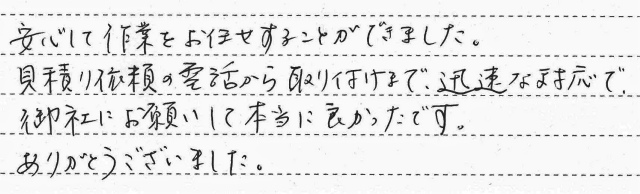 安心して作業をお任せすることができました。
見積り依頼の電話から取り付けまで、迅速な対応で、
御社にお願いして本当に良かったです。
ありがとうございました。